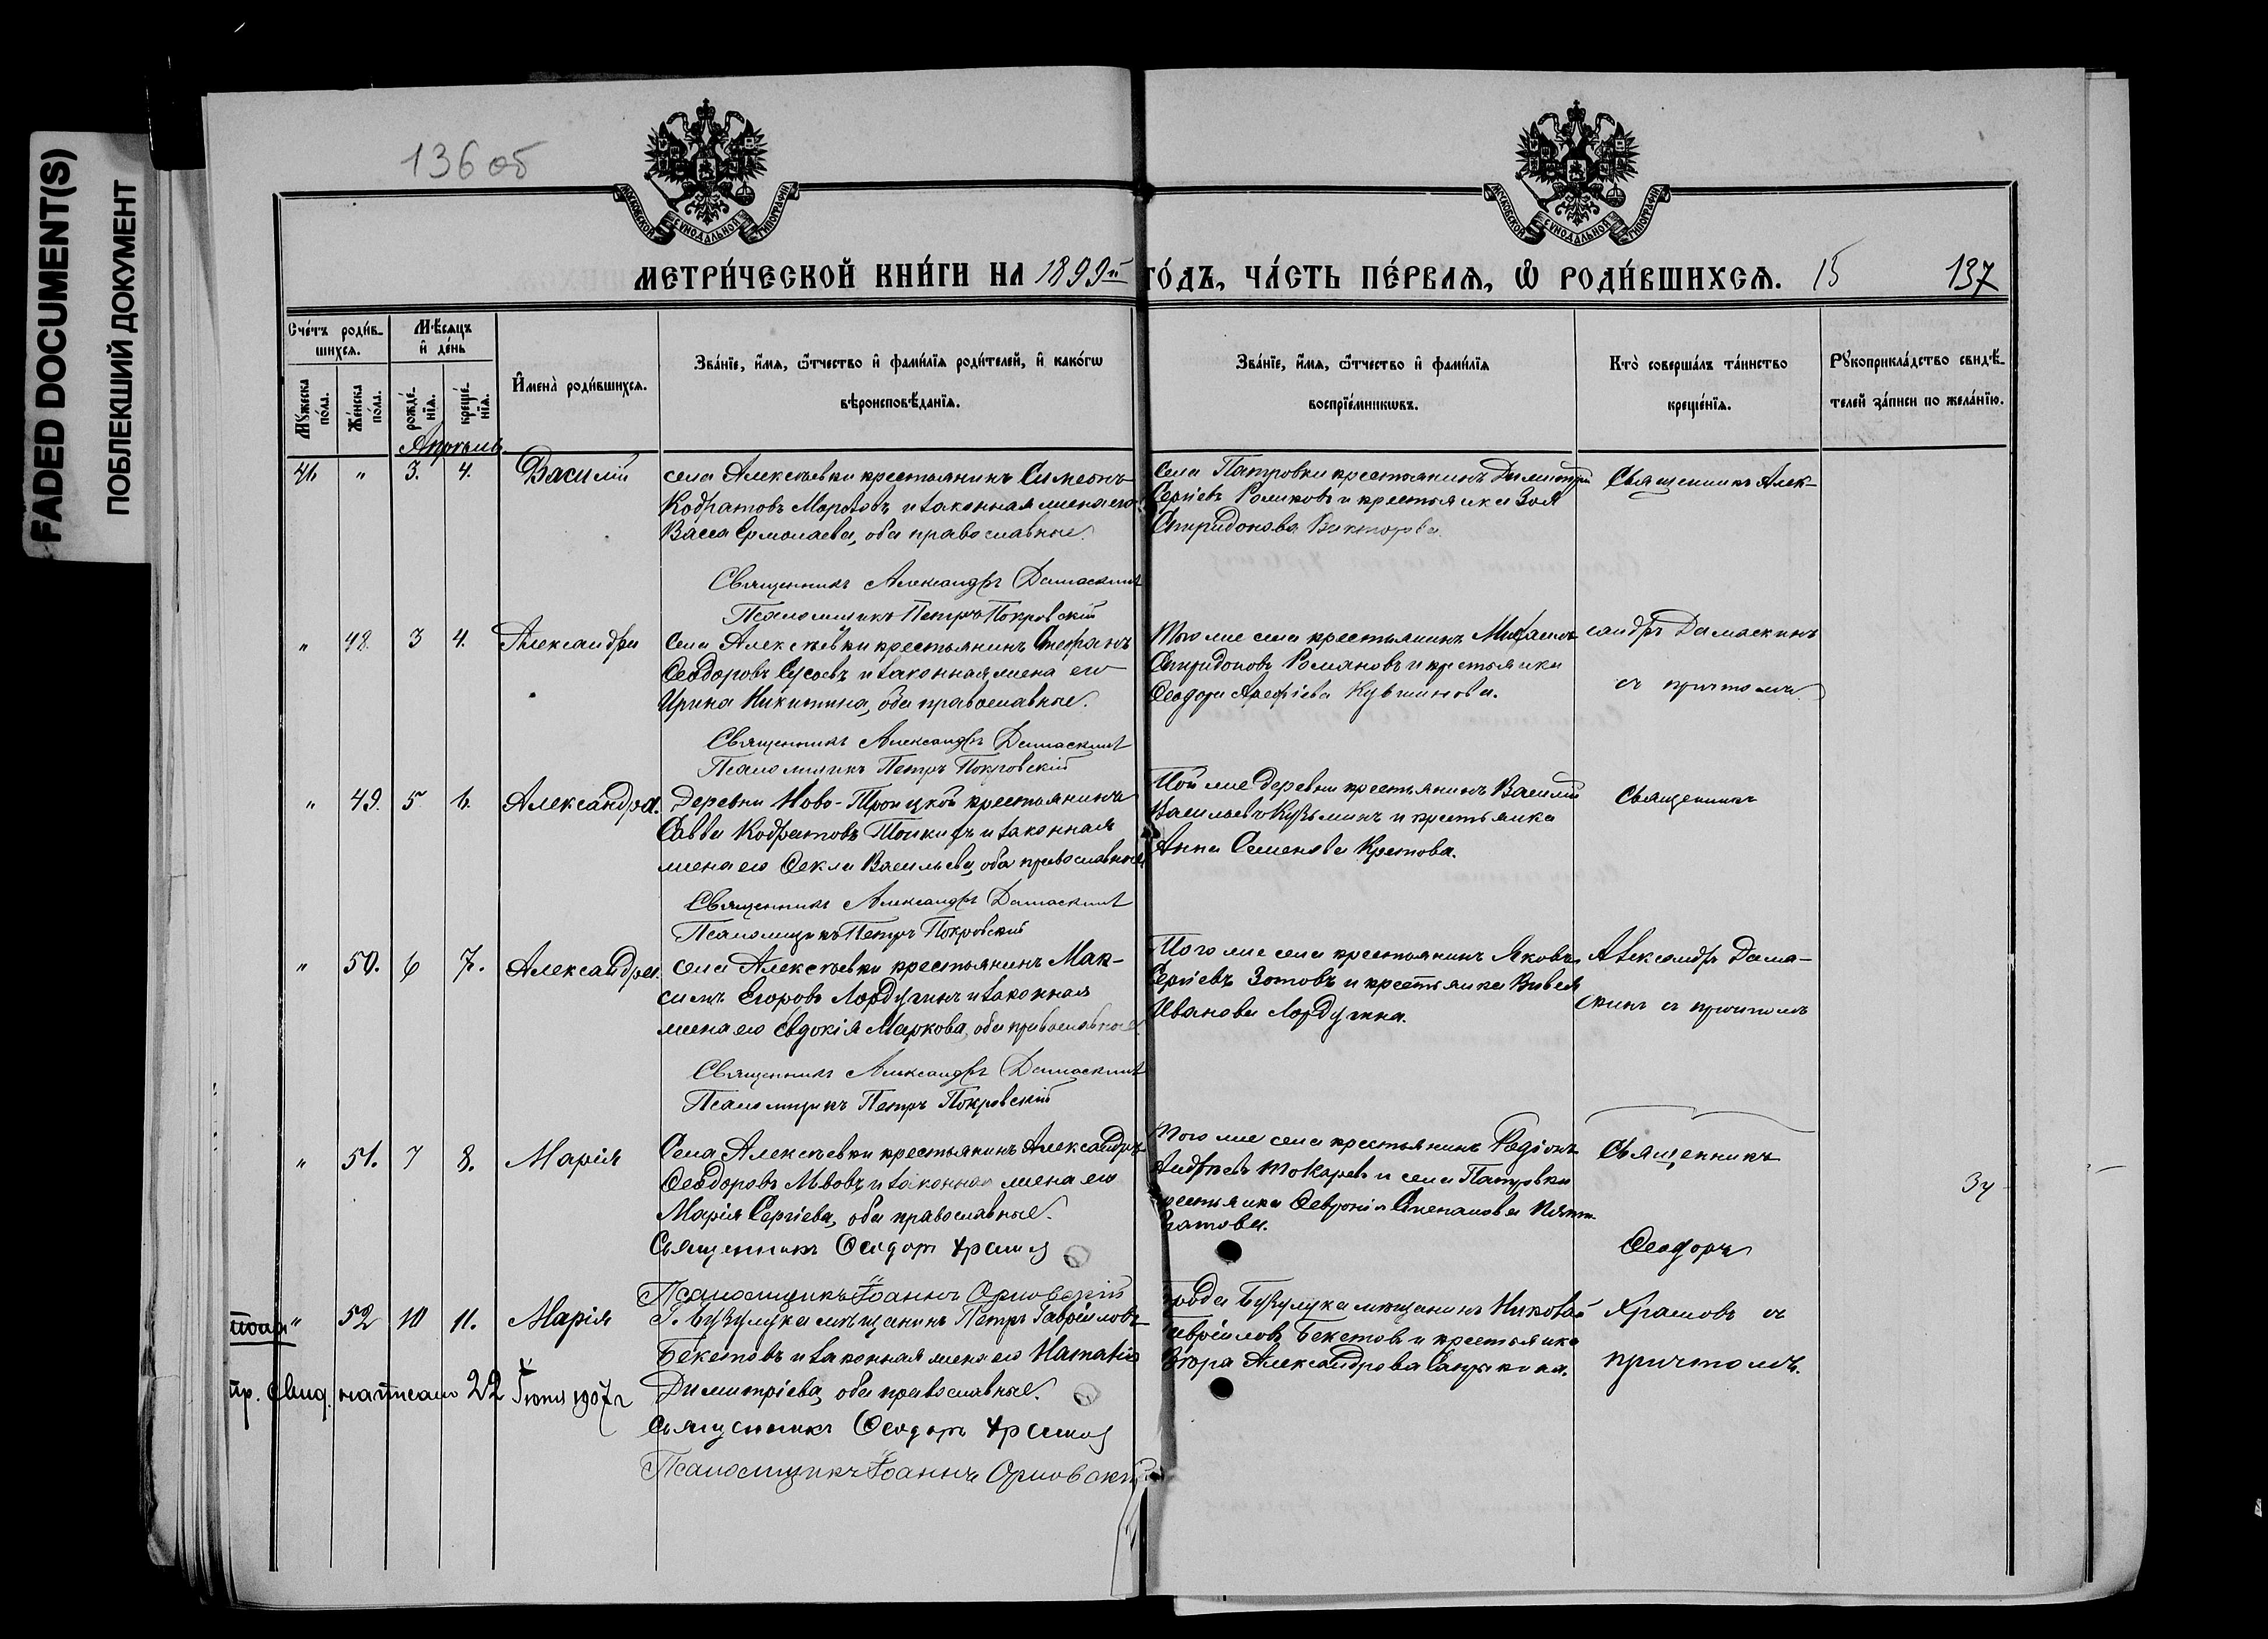 FADED DOCUMENT(S)
ПОБЛЕКШИЙ ДОКУМЕНТ
136 об
МОСКОВСКОЙ СѴНОДАЛЬНОЙ ТИПОГРАФІИ
МОСКОВСКОЙ СѴНОДАЛЬНОЙ ТИПОГРАФІИ
МЕТРИ́ЧЕСКОЙ КНИ́ГИ НА 1899й ГО́ДЪ, ЧА́СТЬ ПЕ́РВАЯ, Ѡ РОДИ́ВШИХСЯ. 15 137
Сче́тъ роди́в-
шихся.
Мѣ́сяцъ
и де́нь
Мꙋ́жеска по́ла.
Же́нска по́ла.
рожде́-
нїя.
креще́-
нїя.
Имена̀ роди́вшихся.
Зва́нїе, и́мя, ѻ́тчество и фами́лїя роди́телей, и како́гѡ
вѣроисповѣ́данїя.
Зва́нїе, и́мя, ѻ́тчество и фами́лїя
воспрїе́мникѡвъ.
Кто̀ соверша́лъ та́инство
креще́нїя.
Рꙋкоприкла́дство свидѣ́-
телей за́писи по жела́нїю.
Апрѣль.
" 3. 4. Василій
села Алексѣевки крестьянинъ Симеонъ
Кодратовъ Моровъ и законная жена его
Васса Ермолаева, оба православные.
Священникъ Александръ Дамаскинъ
Псаломщикъ Петръ Покровскій
села Патровки крестьянинъ Димитрій
Сергіевъ Роликовъ и крестьянка Зоя
Спиридонова Викторова.
Священникъ Алек-
" 48. 3 4. Александра
села Алексѣевки крестьянинъ Стефанъ
Ѳеодоровъ Сусоевъ и законная жена его
Ирина Никитина, оба православные.
Священникъ Александръ Дамаскинъ
Псаломщикъ Петръ Покровскій
того же села крестьянинъ Михаилъ
Спиридоновъ Романовъ и крестьянка
Ѳеодора Арефіева Кувшинова.
сандръ Дамаскинъ
съ причтомъ.
" 49. 5 6. Александра.
Деревни Ново-Троицкой крестьянинъ
Савва Кодратовъ и законная
жена его Ѳекла Васильева, оба православные.
Священникъ Александръ Дамаскинъ
Псаломщикъ Петръ Покровскій
Той же деревни крестьянинъ Василій
Васильевъ Кузьминъ и крестьянка
Анна Семенова Кретова.
Священникъ
" 50. 6 7. Александра.
села Алексѣевки крестьянинъ Мак-
симъ Егоровъ Лордугинъ и законная
жена его Евдокія Маркова, оба православные.
Священникъ Александръ Дамаскинъ
Псаломщикъ Петръ Покровскій
Того же села крестьянинъ Яковъ
Сергіевъ Зотовъ и крестьянка
Иванова Лордугина.
Александръ Дама-
скинъ съ причтомъ
" 51. 7 8. Марія
Села Алексѣевки крестьянинъ Александръ
Ѳеодоровъ Львовъ и законная жена его
Марія Сергіева, оба православные.
Священникъ Ѳеодоръ Храмовъ
Псаломщикъ Іоаннъ Орловскій
Того же села крестьянинъ Родіонъ
Андреевъ Токаревъ и села Патровки
крестьянка Ѳевронія Степанова
Священникъ
34
Ѳеодоръ
" 52 10 11. Марія
Г. Бузулука мѣщанинъ Петръ Гавріиловъ
Бекетовъ и законная жена его Наталія
Димитріева, оба православные.
Священникъ Ѳеодоръ Храмовъ
Псаломщикъ Іоаннъ Орловскій
города Бузулука мѣщанинъ Николай
Гавріиловъ Бекетовъ и крестьянка
Александрова
Храмовъ съ
причтомъ.
пр. свид. написано 22 Іюня 1907 г